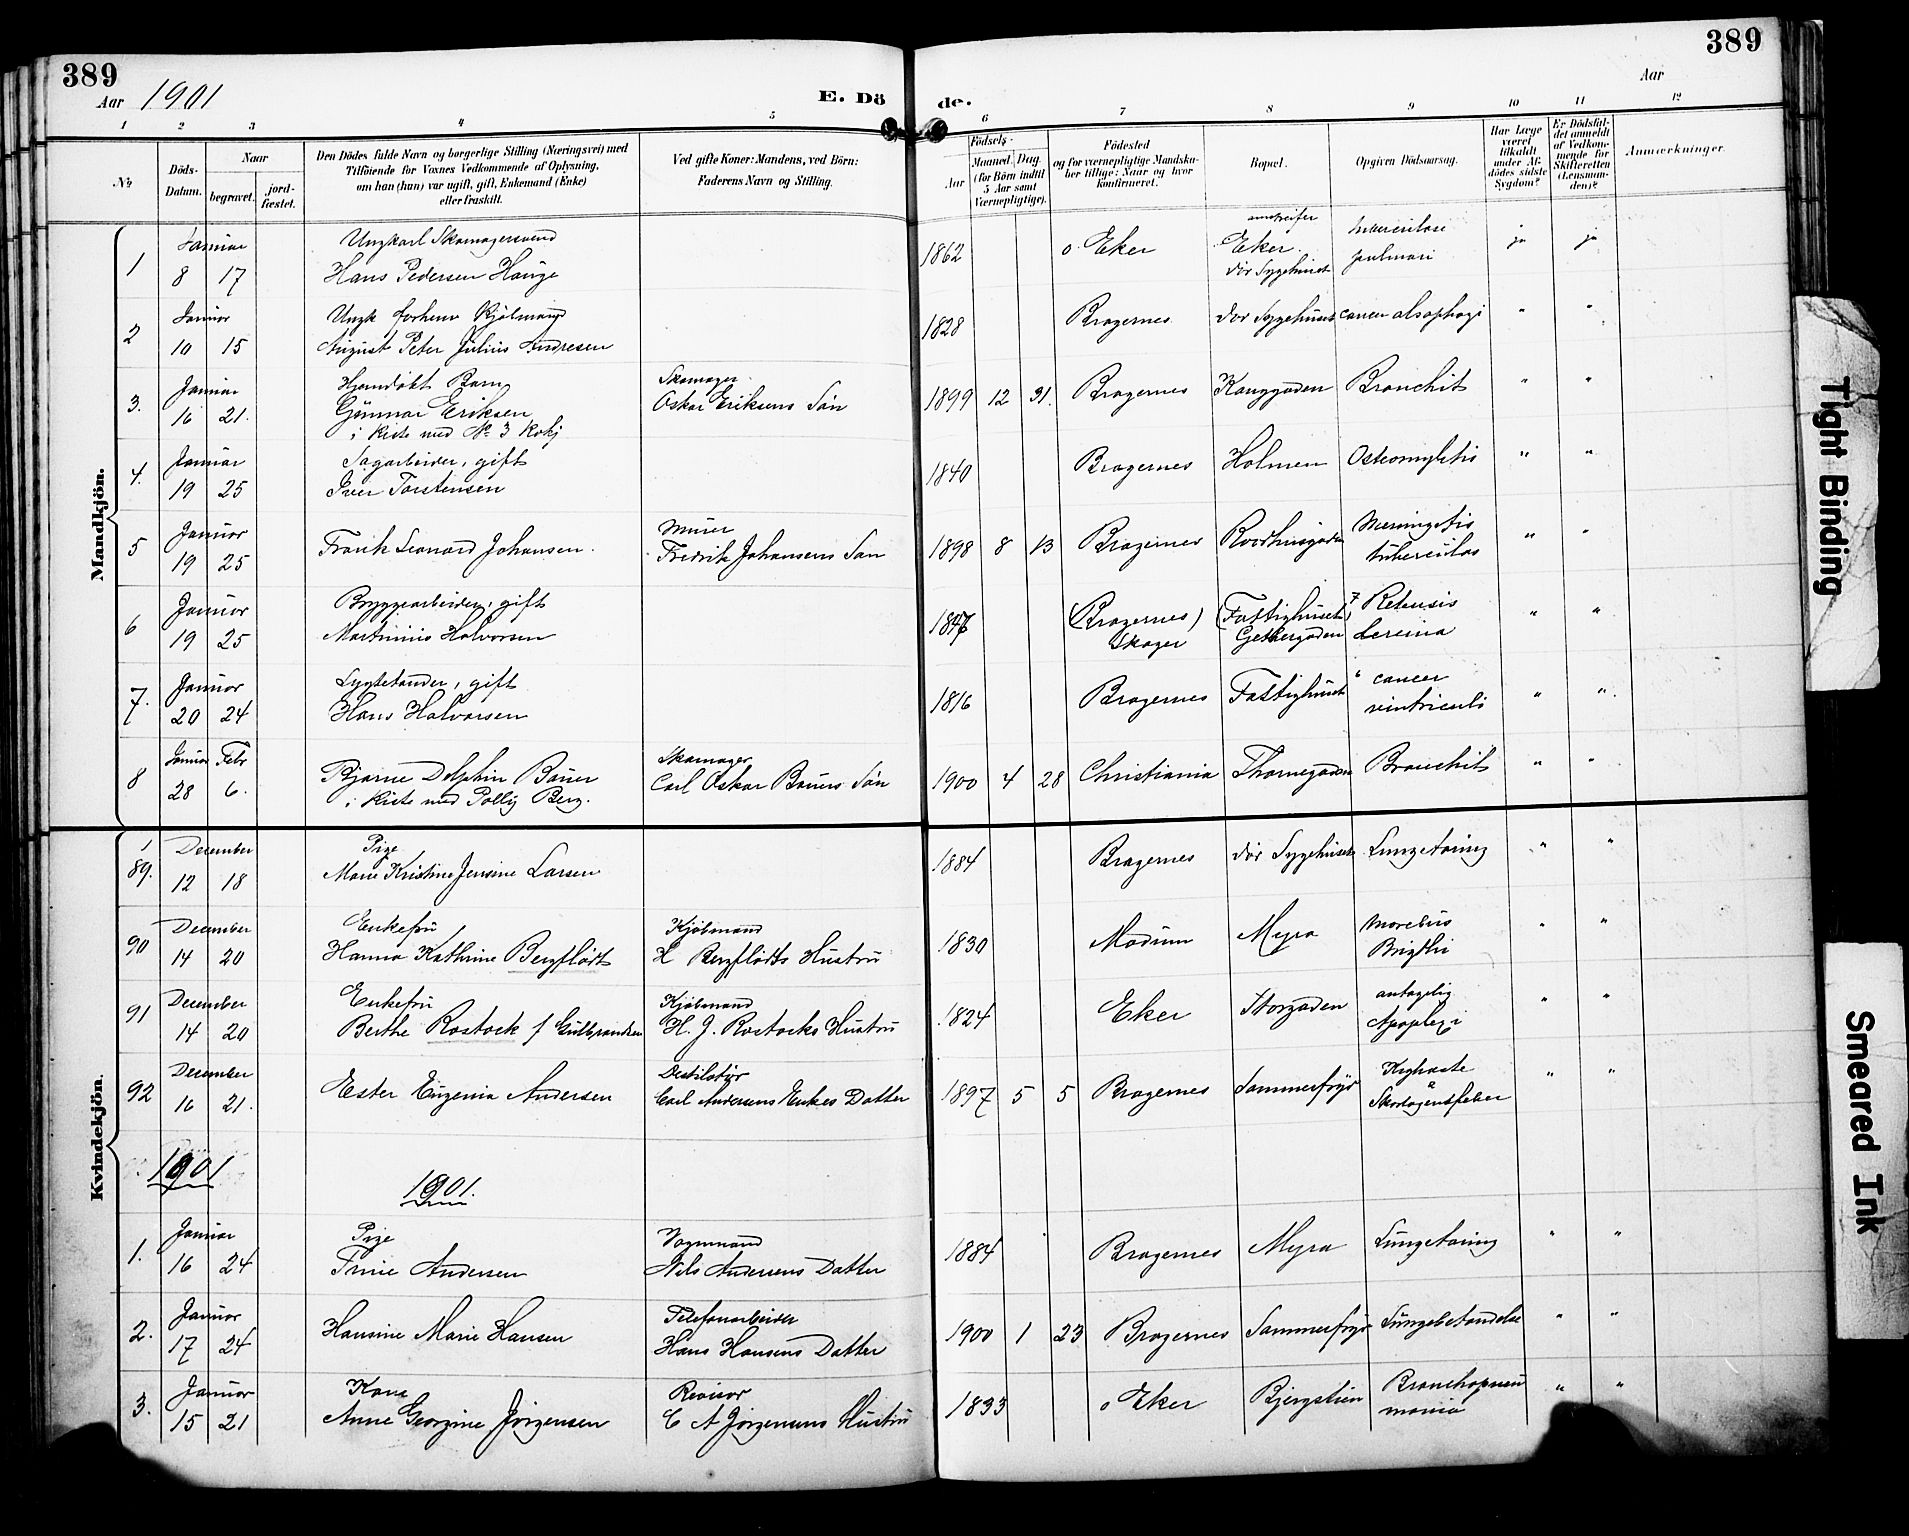 389
389
Aar 1901
E. Dö de.
Aar
1 2 3 4 5 6 7 8 9 10 11 12
No
Döds-Datum.
Naar
begravet.
jord-fæstet.
Den Dödes fulde Navn og borgerlige Stilling (Næringsvei) med
Tilföiende for Voxnes Vedkommende af Oplysning,
om han (hun) var ugift, gift, Enkemand (Enke)
eller fraskilt.
Ved gifte Koner: Mandens, ved Börn:
Faderens Navn og Stilling.
Födsels-
Aar
Maaned. Dag.
(for Börn indtil
5 Aar samt
Værnepligtige).
Födested
og for værnepligtige Mandska-
ber tillige: Naar og hvor
konfirmeret.
Bopæl.
Opgiven Dödsaarsag.
Har Læge
været
tilkaldt
under Af-
dödes sidste
Sygdom?
Er Dödsfal-
det anmeldt
af Vedkom-
mende for
Skifteretten
(Lensman-
den)?
Anmærkninger.
Mandkjön.
1 Januar 8 17 Ungkarl Skomagersvend
Hans Pedersen Hauge 1862 ø. Eker Eker.
dör Sygehuset tuberculose
pulmon ja ja
2 Januar 10 15 Ungk forhenv Kjøbmand
August Peter Julius Andresen 1828 Bragernes dör Sygehuset cancer " "
3. Januar 16 21. Hjemdøbt Barn
Gunnar Eriksen
i Kiste med No 3 Skomager
Oskar Eriksens Sön 1899 12 31. Bragernes Konggaden Bronchit " "
4. Januar 19 25 Sagarbeider, gift
Iver Torstensen 1840 Bragernes Holmen " "
5 Januar 19 25 Frank Leonard Johansen. Murer
Fredrik Johansens Sön 1898 8 13 Bragernes Raadhusgaden Meningitis
tuberculos " "
6 Januar 19 25 Bryggearbeider, gift
Martinius Halvorsen (Bragernes)
Skoger (Fattighuset)
" "
7. Januar 20 24 Lygtetænder, gift
Hans Halvorsen 1816 Bragernes Fattighuset cancer
ventriculi " "
8 Januar Febr 28 6. Bjarne Dolphin Bauer
i Kiste med Polly Berg. Skomager
Carl Oskar Bauers Sön 1900 4 28 Christiania Thornegaden Bronchit " "
Kvindekjön.
89. December 12 18 Pige
Marie Kristine Jensine Larsen 1884 Bragernes dör Sygehuset Lungetæring " "
90 December 14 20 Enkefru
Hanna Kathrine Bergflødt Kjøbmand
H Bergflødts Hustru 1830 Modum Myra Morbus
Brigthi " "
91 December 14 20 Enkefru
Berthe Rostock f Gulbrandsen Kjøbmand
H. J. Rostocks Hustru 1824 Eker Storgaden antagelig
Apoplexi " "
92 December 16 21. Ester Eugenia Andersen Destilatør
Carl Andersens Enkes Datter 1897 5 5 Bragernes Sommerfryd Kighoste
&
Skarlagensfeber " "
1901 1901.
1. Januar 16 24 Pige
Trine Andersen Vognmand
Nils Andersens Datter 1884 Bragernes Myra Lungetæring " "
2. Januar 17 24 Hansine Marie Hansen Telefonarbeider
Hans Hansens Datter 1900 1 23 Bragernes Sommerfryd Lungebetændelse " "
3. Januar 15 21 Kone
Anne Georgine Jørgensen Revisor
C A Jørgensens Hustru 1833 ø Eker Bjergstien Bronchopneu
monia " "
Tight Binding
Smeared Ink